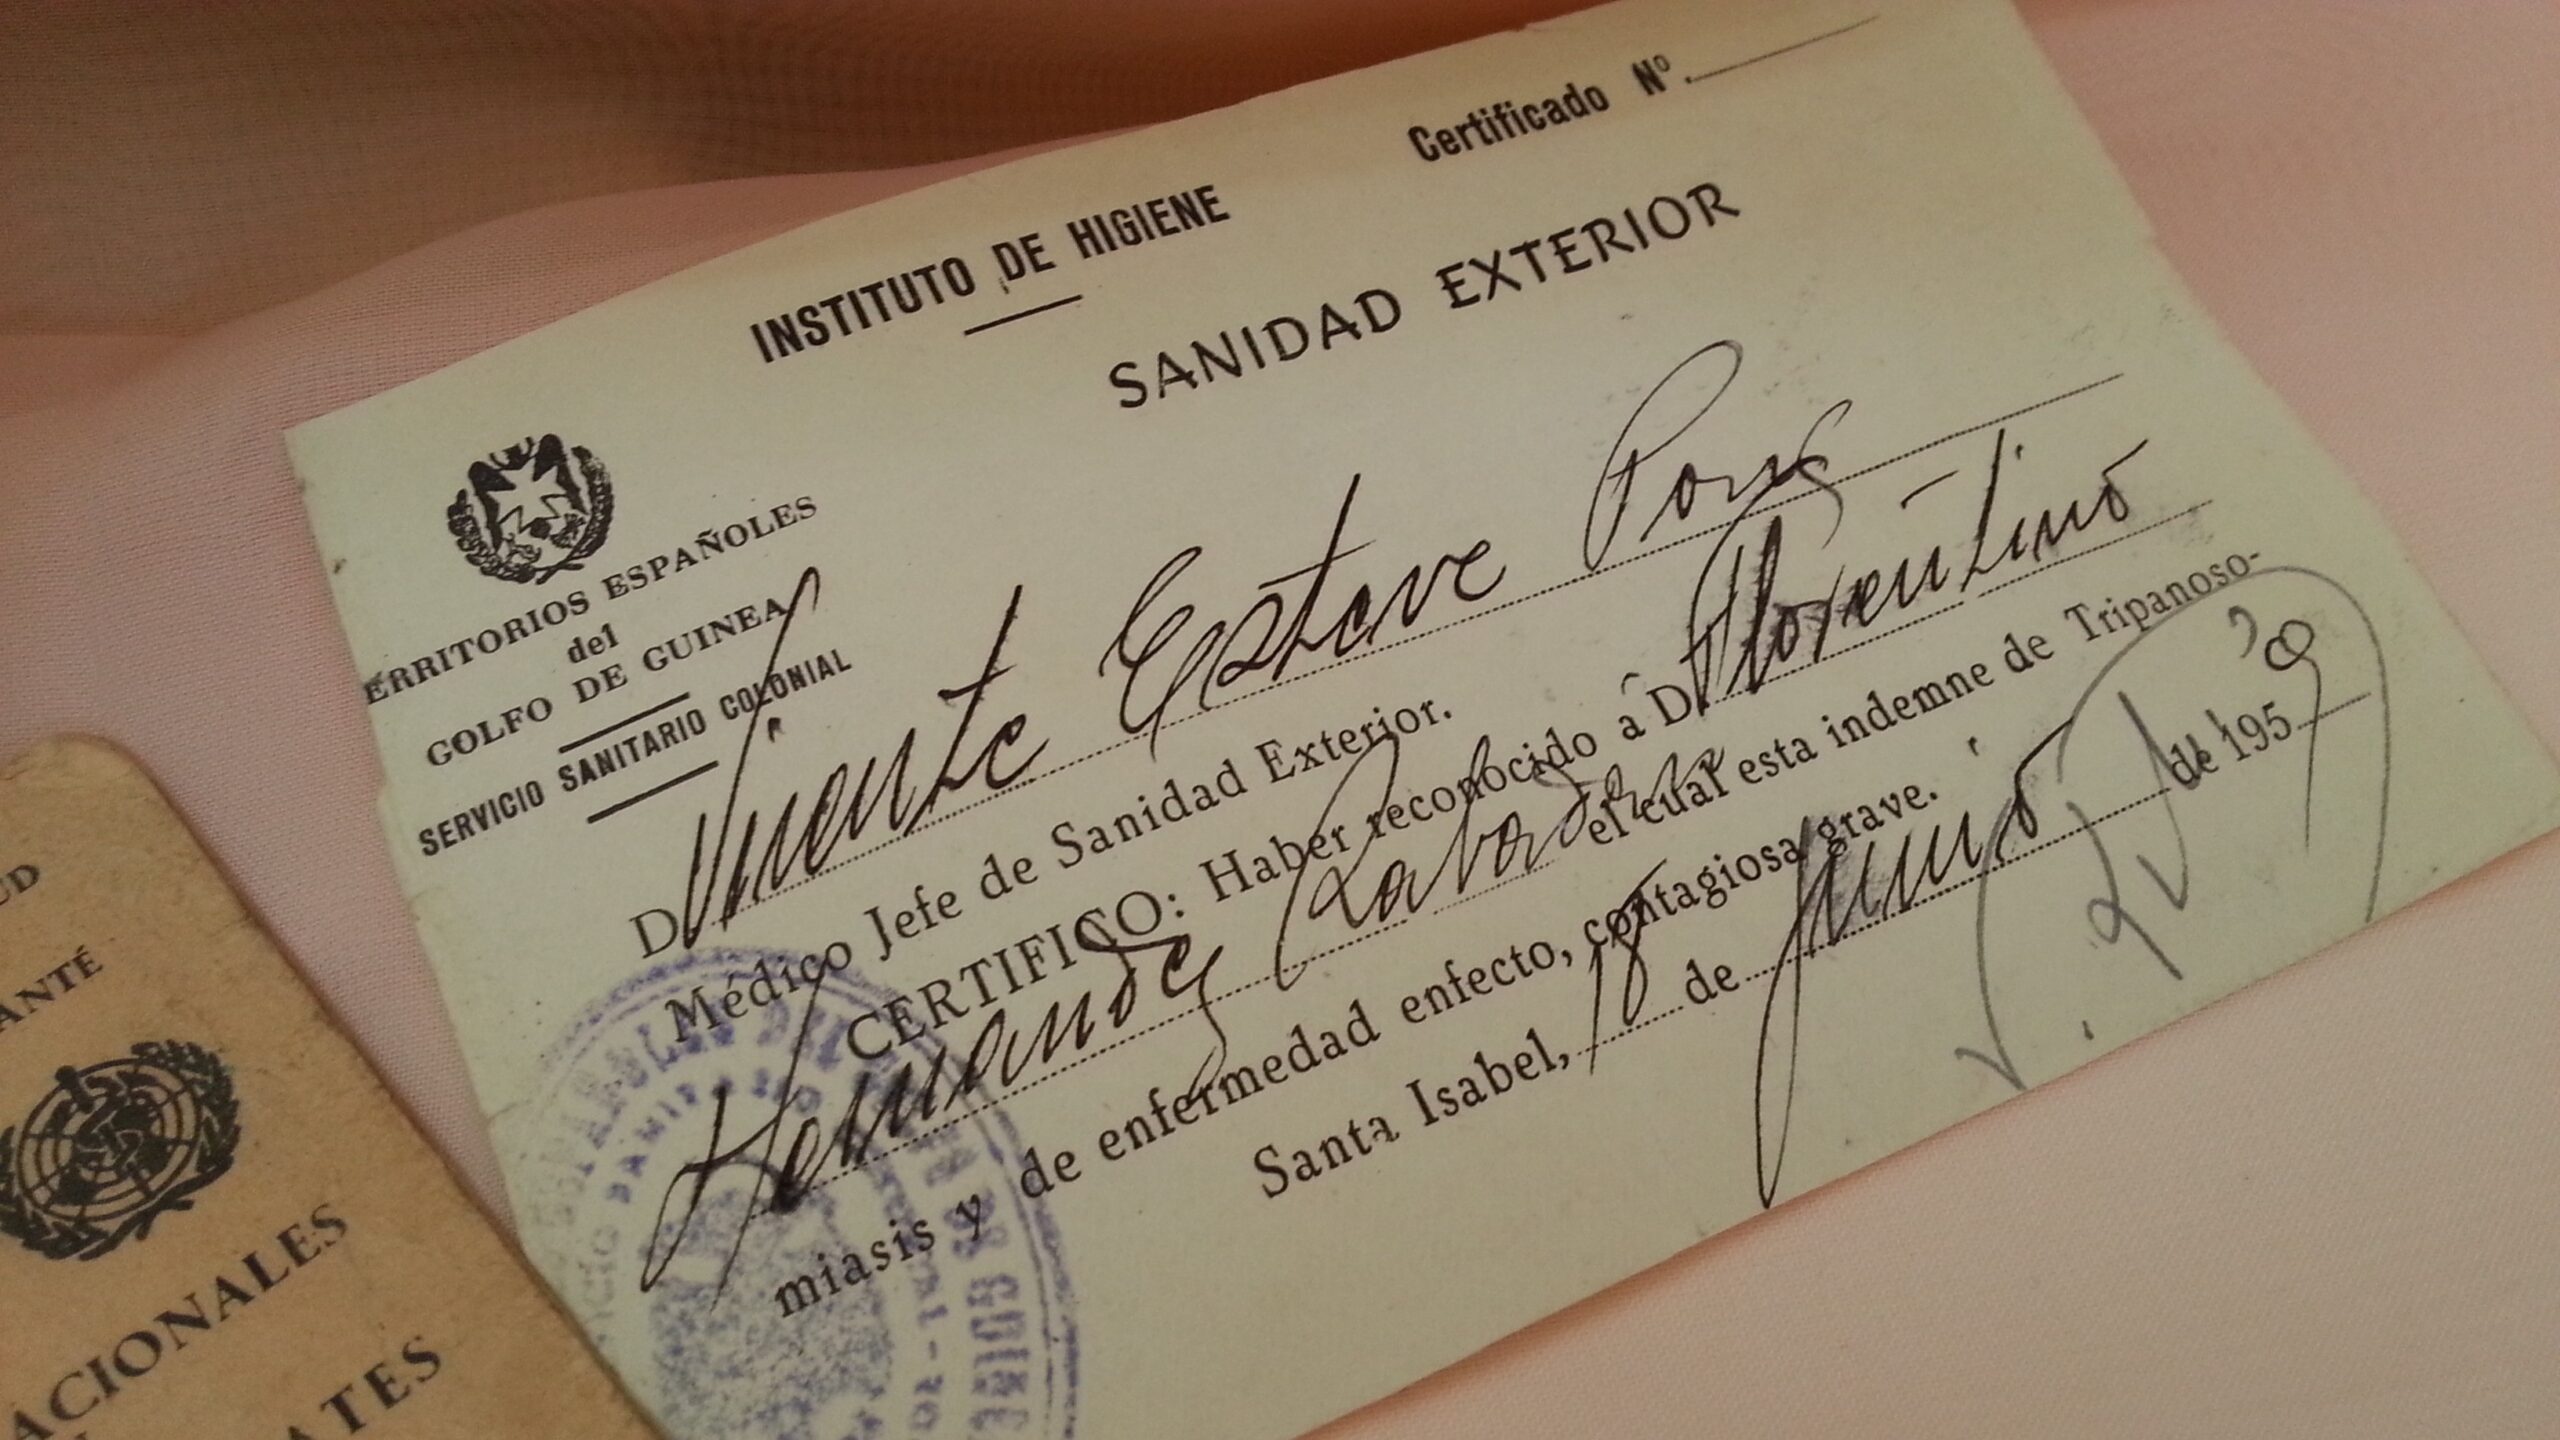 Certificado Nº.
INSTITUTO DE HIGIENE
SANIDAD EXTERIOR
ERRITORIOS ESPAÑOLES
del
GOLFO DE GUINEA
SERVICIO SANITARIO COLONIAL
D. Vicente Esteve Pons
Médico Jefe de Sanidad Exterior.
CERTIFICO: Haber reconocido a D. Florentino
Hernandez el cual esta indemne de Tripanoso-
miasis y de enfermedad enfecto, contagiosa grave.
Santa Isabel, 18 de Junio de 1959
UD
ANTÉ
ACIONALES
ATES